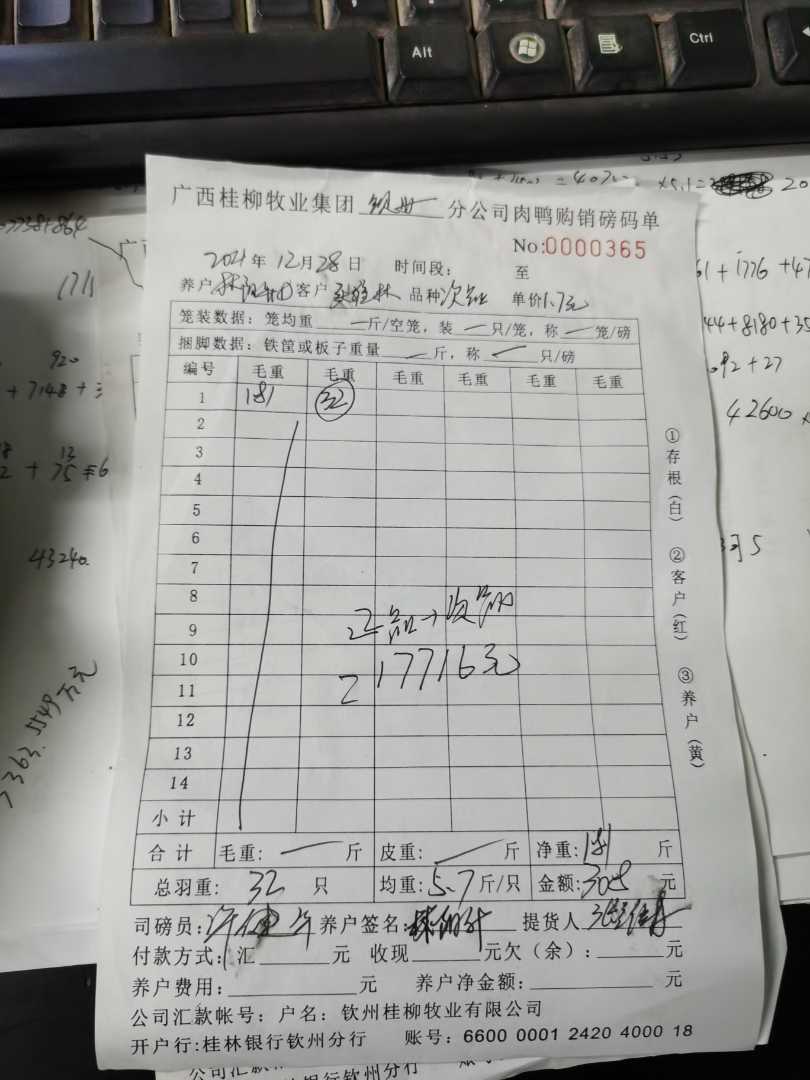 Alt
Ctrl
广西桂柳牧业集团 钦州 分公司肉鸭购销磅码单
No:0000365
2021年 12月28日 时间段: 至
养户 客户 品种 次品 单价1.7元
笼装数据: 笼均重 一 斤/空笼, 装 一 只/笼, 称 一 笼/磅
捆脚数据: 铁筐或板子重量 一 斤, 称 一 只/磅
编号 毛重 毛重 毛重 毛重 毛重 毛重
1 181 32
2
3
4
5
6
7
8
9 正品+次品
10
11 =17716元
12
13
14
小计
合计 毛重: 一 斤 皮重: 一 斤 净重: 181 斤
总羽重: 32 只 均重: 5.7 斤/只 金额: 308 元
司磅员: 养户签名: 提货人
付款方式: 汇 元 收现 元欠(余): 元
养户费用: 元 养户净金额: 元
公司汇款帐号: 户名: 钦州桂柳牧业有限公司
开户行:桂林银行钦州分行 账号: 6600 0001 2420 4000 18
①存根(白) ②客户(红) ③养户(黄)
1711
920
+ 7148 +
43240.
61 + 1776 + 47
44+8180+35
92 + 27
42600